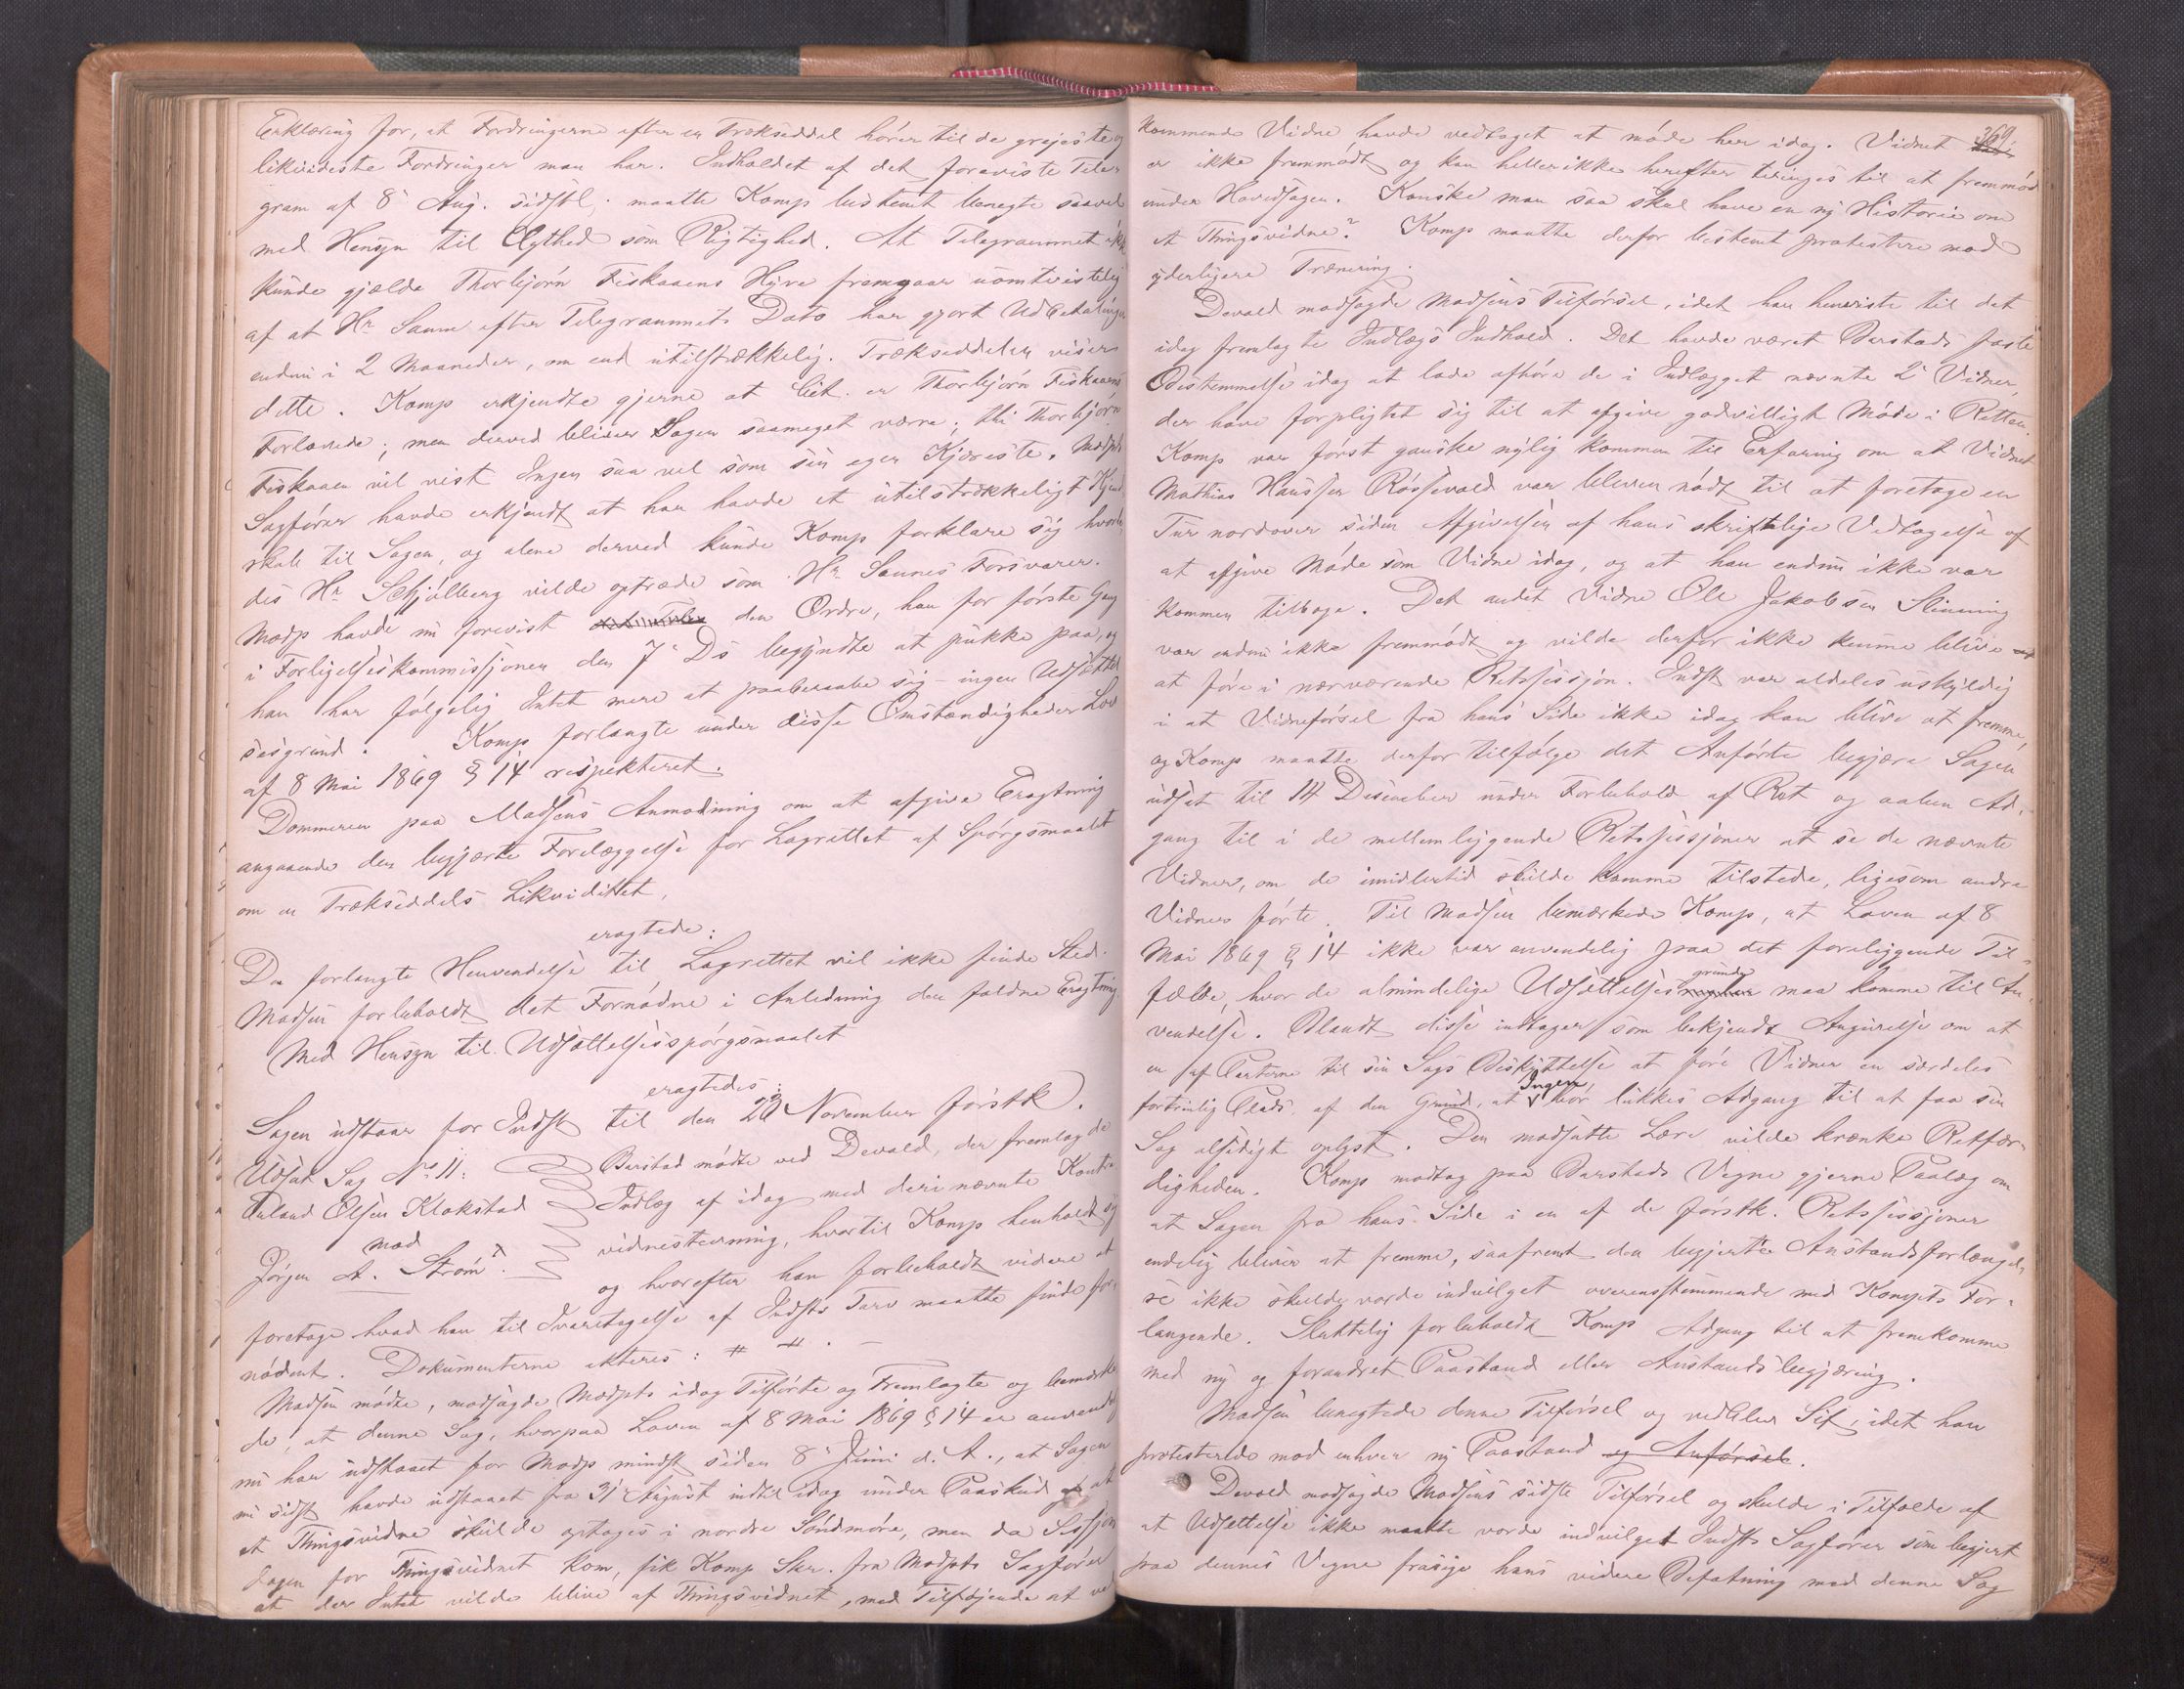 Erklæring for, at Fordringerne efter en Trækseddel hører til de grejeste og
likvideste Fordringer man har. Indholdet af det foreviste Tele-
gram af 8 Aug. sidstl. maatte Komp bestemt benegte saavel
med Hensyn til Ægthed som Rigtighed. At Telegrammet ikke
kunde gjælde Thorbjørn Fiskaaens Hyre fremgaar uomtvistelig
af at Hr Saune efter Telegrammets Dato har gjort Udbetalinger
endnu i 2 Maaneder, om end utilstrækkelig. Trækseddelen viser
dette. Komp erkjendte gjerne at Cit. er Thorbjørn Fiskaaens
Forlovede; men derved bliver Sagen saameget værre; thi Thorbjørn
Fiskaaen vil vist Ingen saa vel som sin egen Kjæreste. Modpts
Sagfører havde erkjendt at han havde et utilstrækkeligt Kjend-
skab til Sagen, og alene derved kunde Komp forklare sig hvorle-
des Hr Schjølberg vilde optræde som Hr Saunes Forsvarer.
Modp havde nu forevist den Ordre, han for første Gang
i Forligelseskommissjonen den 7 Ds begyndte at pukke paa, og
han har følgelig Intet mere at paaberaabe sig – ingen Udsættel-
sesgrund. Komp forlangte under disse Omstændigheder Lov
af 8 Mai 1869 § 14 respekteret.
Dommeren paa Madsens Anmodning om at afgive Eragtning
angaaende den begjærte Forelæggelse for Lagrettet af Spørgsmaalet
om en Trækseddels Likviditet,
eragtede:
Den forlangte Henvendelse til Lagrettet vil ikke finde Sted.
Madsen forbeholdt det Fornødne i Anledning den faldne Eragtning
Med Hensyn til Udsættelsesspørgsmaalet
eragtedes:
Sagen udstaar for Indst til den 23 November førstk.
Udsat Sag No 11:
Anland Olsen Klokstad
mod
Jørgen A. Strøm.
Barstad mødte ved Devold, der fremlagde
Indlæg af idag med deri nævnte Kontra-
vidnestevning, hvortil Komp henholdt sig
og hvorefter han forbeholdt videre at
foretage hvad han til Ivaretagelse af Indsts Tarv maatte finde for-
nødent. Dokumenterne akteres: # # . –
Madsen mødte, modsagde Modpts idag Tilførte og Fremlagte og bemærke-
de, at denne Sag, hvorpaa Loven af 8 Mai 1869 § 14 er anvendelig
nu har udstaaet for Modp mindst siden 8 Juni d. A., at Sagen
nu sidst havde udstaaet fra 31 August indtil idag under Paaskud at
et Thingsvidne skulde optages i nordre Søndmøre, men da Sessjons
dagen for Thingsvidnet kom, fik Komp Skr. fra Modpts Sagfører
at der Intet vilde blive af Thingsvidnet, med Tilføjende at ved
369.
kommende Vidne havde vedtaget at møde her idag. Vidnet
er ikke fremmødt og kan heller ikke herefter tvinges til at fremmøde
under Hovedsagen. Kanske man saa skal have en ny Historie om
et Thingsvidne? Komp maatte derfor bestemt protestere mod
yderligere Trænering.
Devold modsagde Madsens Tilførsel, idet han henviste til det
idag fremlagte Indlægs Indhold. Det havde været Barstads faste
Bestemmelse idag at lade afhøre de i Indlægget nævnte 2 Vidner,
der have forpligtet sig til at afgive godvilligt Møde i Retten.
Komp var først ganske nylig kommen til Erfaring om at Vidnet
Mathias Hanssen Røssevold var bleven nødt til at foretage en
Tur nordover siden Afgivelsen af hans skriftlige Vedtagelse af
at afgive Møde som Vidne idag, og at han endnu ikke var
kommen tilbage. Det andet Vidne Ole Jakobsen Slinning
var endnu ikke fremmødt og vilde derfor ikke kunne blive
at føre i nærværende Retssessjon. Indst var aldeles uskyldig
i at Vidneførsel fra hans Side ikke idag kan blive at fremme,
og Komp maatte derfor tilfølge det Anførte begjære Sagen
udsat til 14 Desember under Forbehold af Ret og aaben Ad-
gang til i de mellemliggende Retssessjoner at se de nævnte
Vidner, om de imidlertid skulde komme tilstede, ligesom andre
Vidner førte. Til Madsen bemærkede Komp, at Loven af 8
Mai 1869 § 14 ikke var anvendelig paa det foreliggende Til-
fælde, hvor de almindelige Udsættelsesgrunde maa komme til An-
vendelse. Blandt disse indtager som bekjendt Angivelse om at
en af Parterne til sin Sags Beskyttelse at føre Vidner en særdeles
fortrinlig Plads af den Grund, at Ingen bør lukkes Adgang til at faa sin
Sag alsidigt oplyst. Den modsatte Lære vilde krænke Retfær-
digheden. Komp modtog paa Barstads Vegne gjerne Paalæg om
at Sagen fra hans Side i en af de førstk. Retssessjoner
endelig bliver at fremme, saafremt den begjærte Anstandsforlængel-
se ikke skulde vorde indvilget overensstemmende med Kompts For-
langende. Sluttelig forbeholdt Komp Adgang til at fremkomme
med ny og forandret Paastand eller Anstandsbegjæring.
Madsen benegtede denne Tilførsel og vedblev Sit, idet han
protesterede mod enhver ny Paastand og Anførsel.
Devold modsagde Madsens sidste Tilførsel og skulde i Tilfælde af
at Udsættelse ikke maatte vorde indvilget Indsts Sagfører som begjært
paa dennes Vegne frasige hans videre Befatning med denne Sag